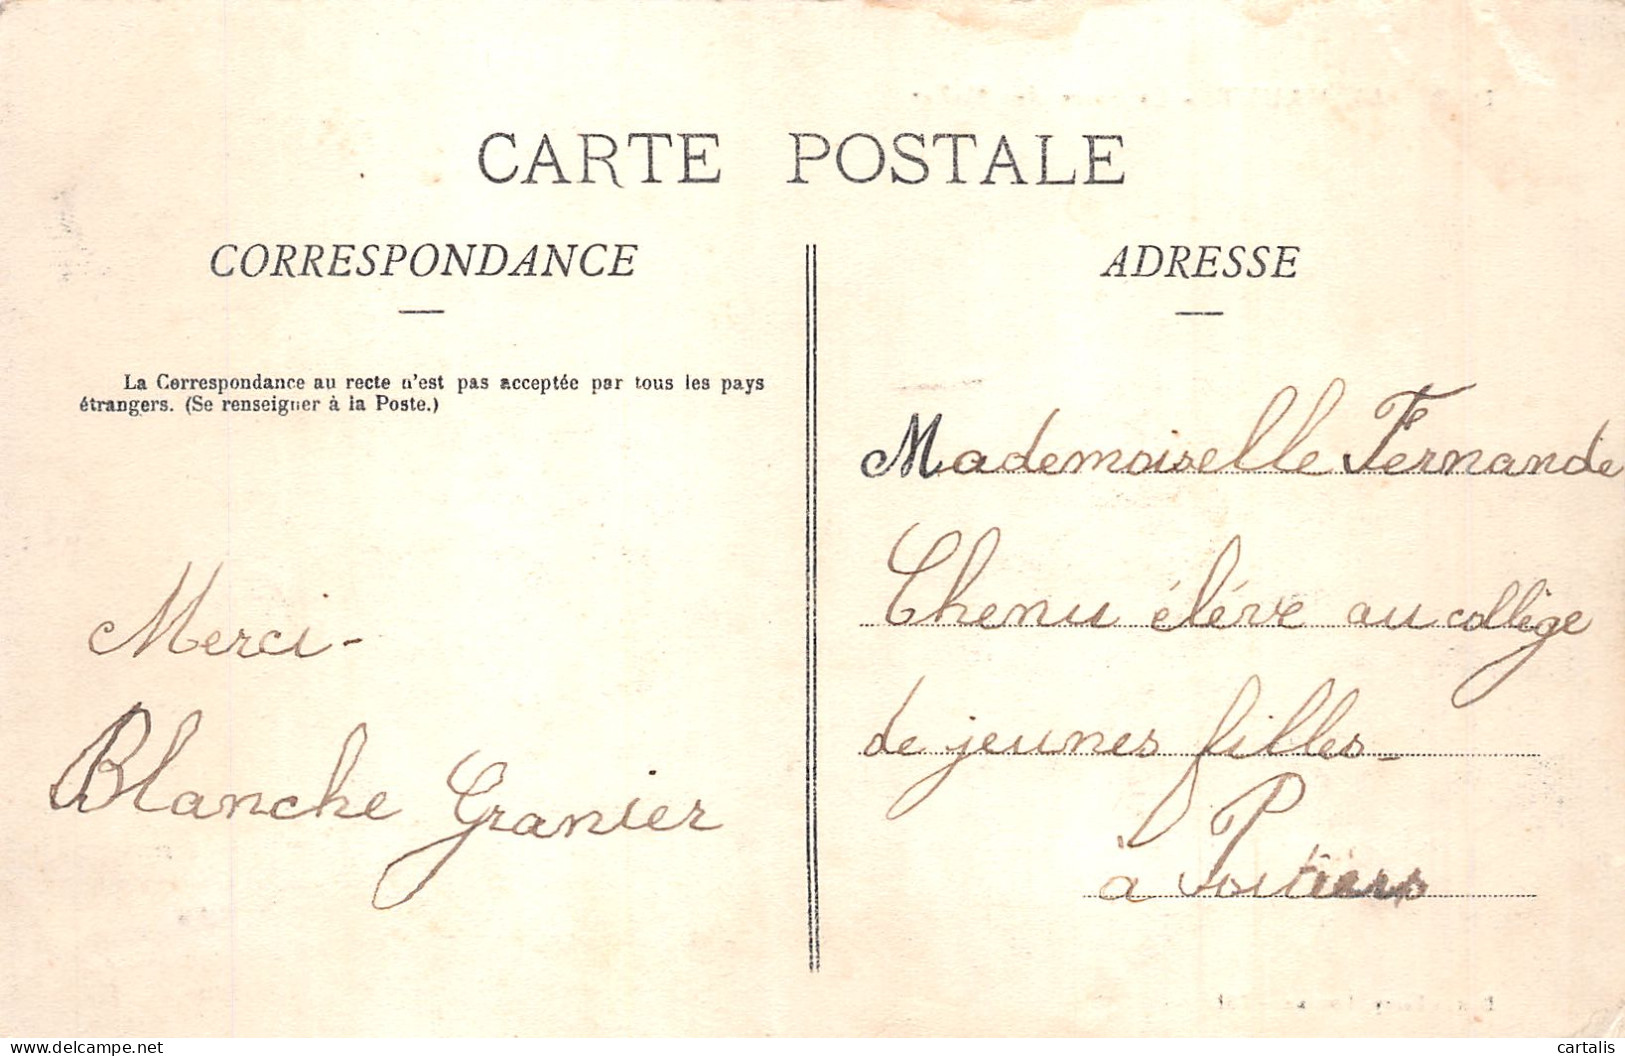 CARTE POSTALE
CORRESPONDANCE
La Correspondance au recto n'est pas acceptée par tous les pays
étrangers. (Se renseigner à la Poste.)
Merci-
Blanche Granier
ADRESSE
Mademoiselle Fernande
Chenu éléve au collège
de jeunes filles-
à Poitiers
delcampe.net
cartalis